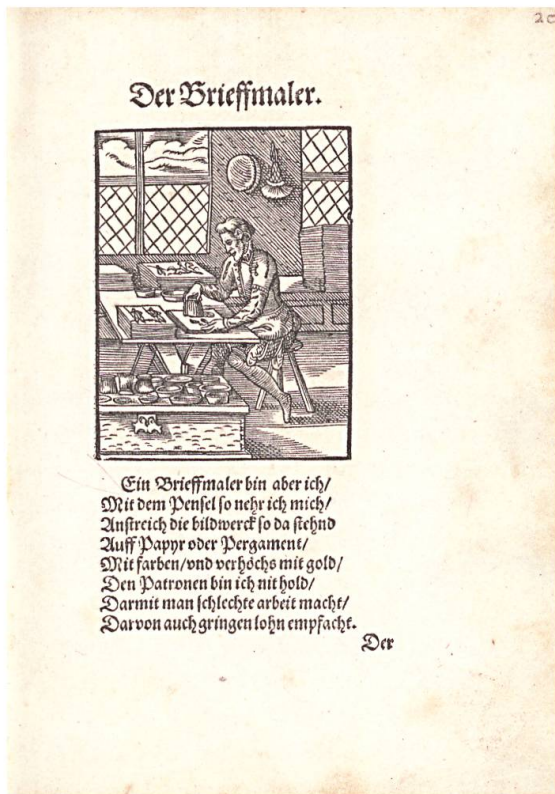 20
Der Brieffmaler.
Ein Brieffmaler bin aber ich/
Mit dem Pensel so nehr ich mich/
Anstreich die bildwerck so da stehnd
Auff Papyr oder Pergament/
Mit farben/vnd verhöchs mit gold/
Den Patronen bin ich nit hold/
Darmit man schlechte arbeit macht/
Darvon auch gringen lohn empfacht.
Der